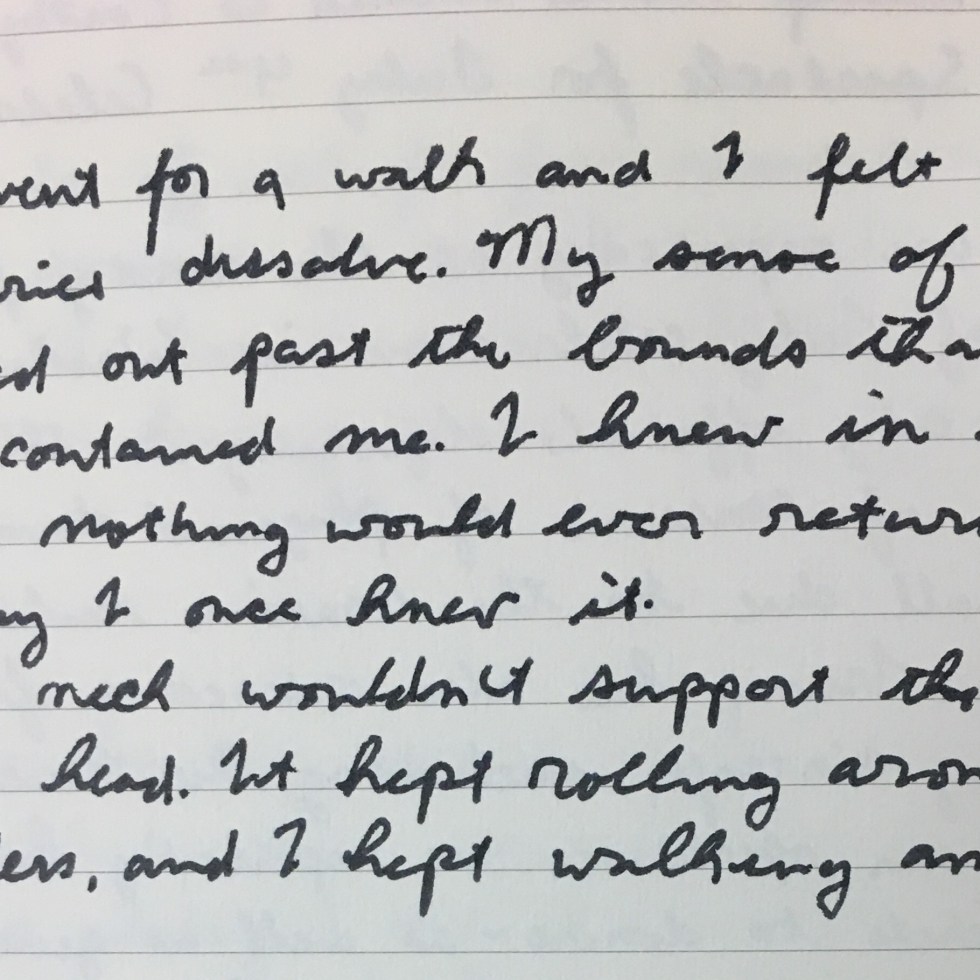 went for a walk and I felt
ries dissolve. My sense of
ed out past the bounds tha
contained me. I knew in
nothing would ever retur
ay I once knew it.
neck wouldn't support the
head. It kept rolling aroun
ders, and I kept walking an